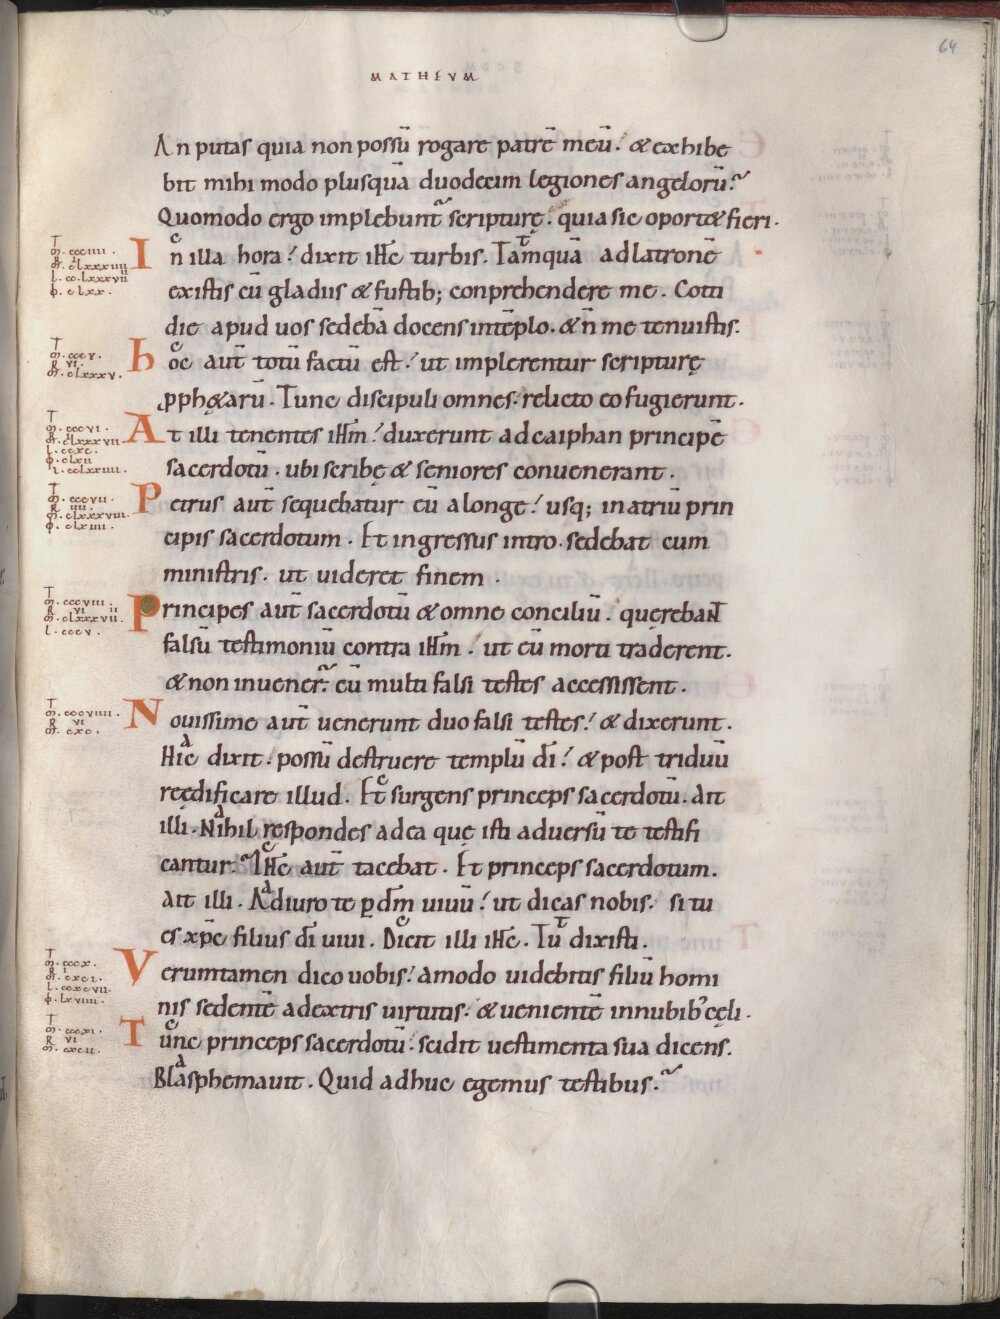 64
MATHEVM
An putas quia non possū rogare patrē meū? & exhibe
bit mihi modo plusquā duodecim legiones angelorū?
Quomodo ergo implebunt̃ scripturę? quia sic oport& fieri.
In illa hora! dixit ihc̄ turbis. Tamquā ad latronē
existis cū gladiis & fustib; conprehendere me. Coti
die apud uos sedebā docens in tēplo. & n̄ me tenuistis.
hoc aut̄ totū factū est! ut implerentur scripturę
pph&arū. Tunc discipuli omnes. relicto eo fugierunt.
At illi tenentes ihm̄! duxerunt ad caiphan principē
sacerdotū. ubi scribę & seniores conuenerant.
Petrus aut̄ sequebatur eū a longe! usq; in atriū prin
cipis sacerdotum. Et ingressus intro. sedebat cum
ministris. ut uideret finem.
Principes aut̄ sacerdotū & omne conciliū. querebant
falsū testimoniū contra ihm̄. ut eū morti traderent.
& non inuener̃. cū multi falsi testes accessissent.
Nouissime aut̄ uenerunt duo falsi testes! & dixerunt.
Hic dixit. possū destruere templū dī! & post triduū
reędificare illud. Et surgens princeps sacerdotū. ait
illi. Nihil respondes ad ea que isti aduersū te testifi
cantur? Ihc̄ aut̄ tacebat. Et princeps sacerdotum.
ait illi. Adiuro te p dm̄ uiuū! ut dicas nobis. si tu
es xpc̄ filius dī uiui. Dicit illi ihc̄. Tu dixisti.
Verumtamen dico uobis! amodo uidebitis filiū homi
nis sedentē a dextris uirtutis. & uenientē in nubib; cęli.
Tunc princeps sacerdotū. scidit uestimenta sua dicens.
Blasphemauit. Quid adhuc egemus testibus?